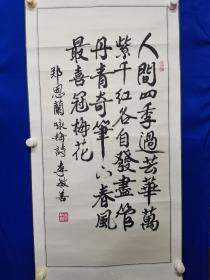 人間四季過芸華萬
紫千红各自發盡管
丹青奇筆下春風
最喜冠梅花
郑恩蘭咏梅詩 李敏善